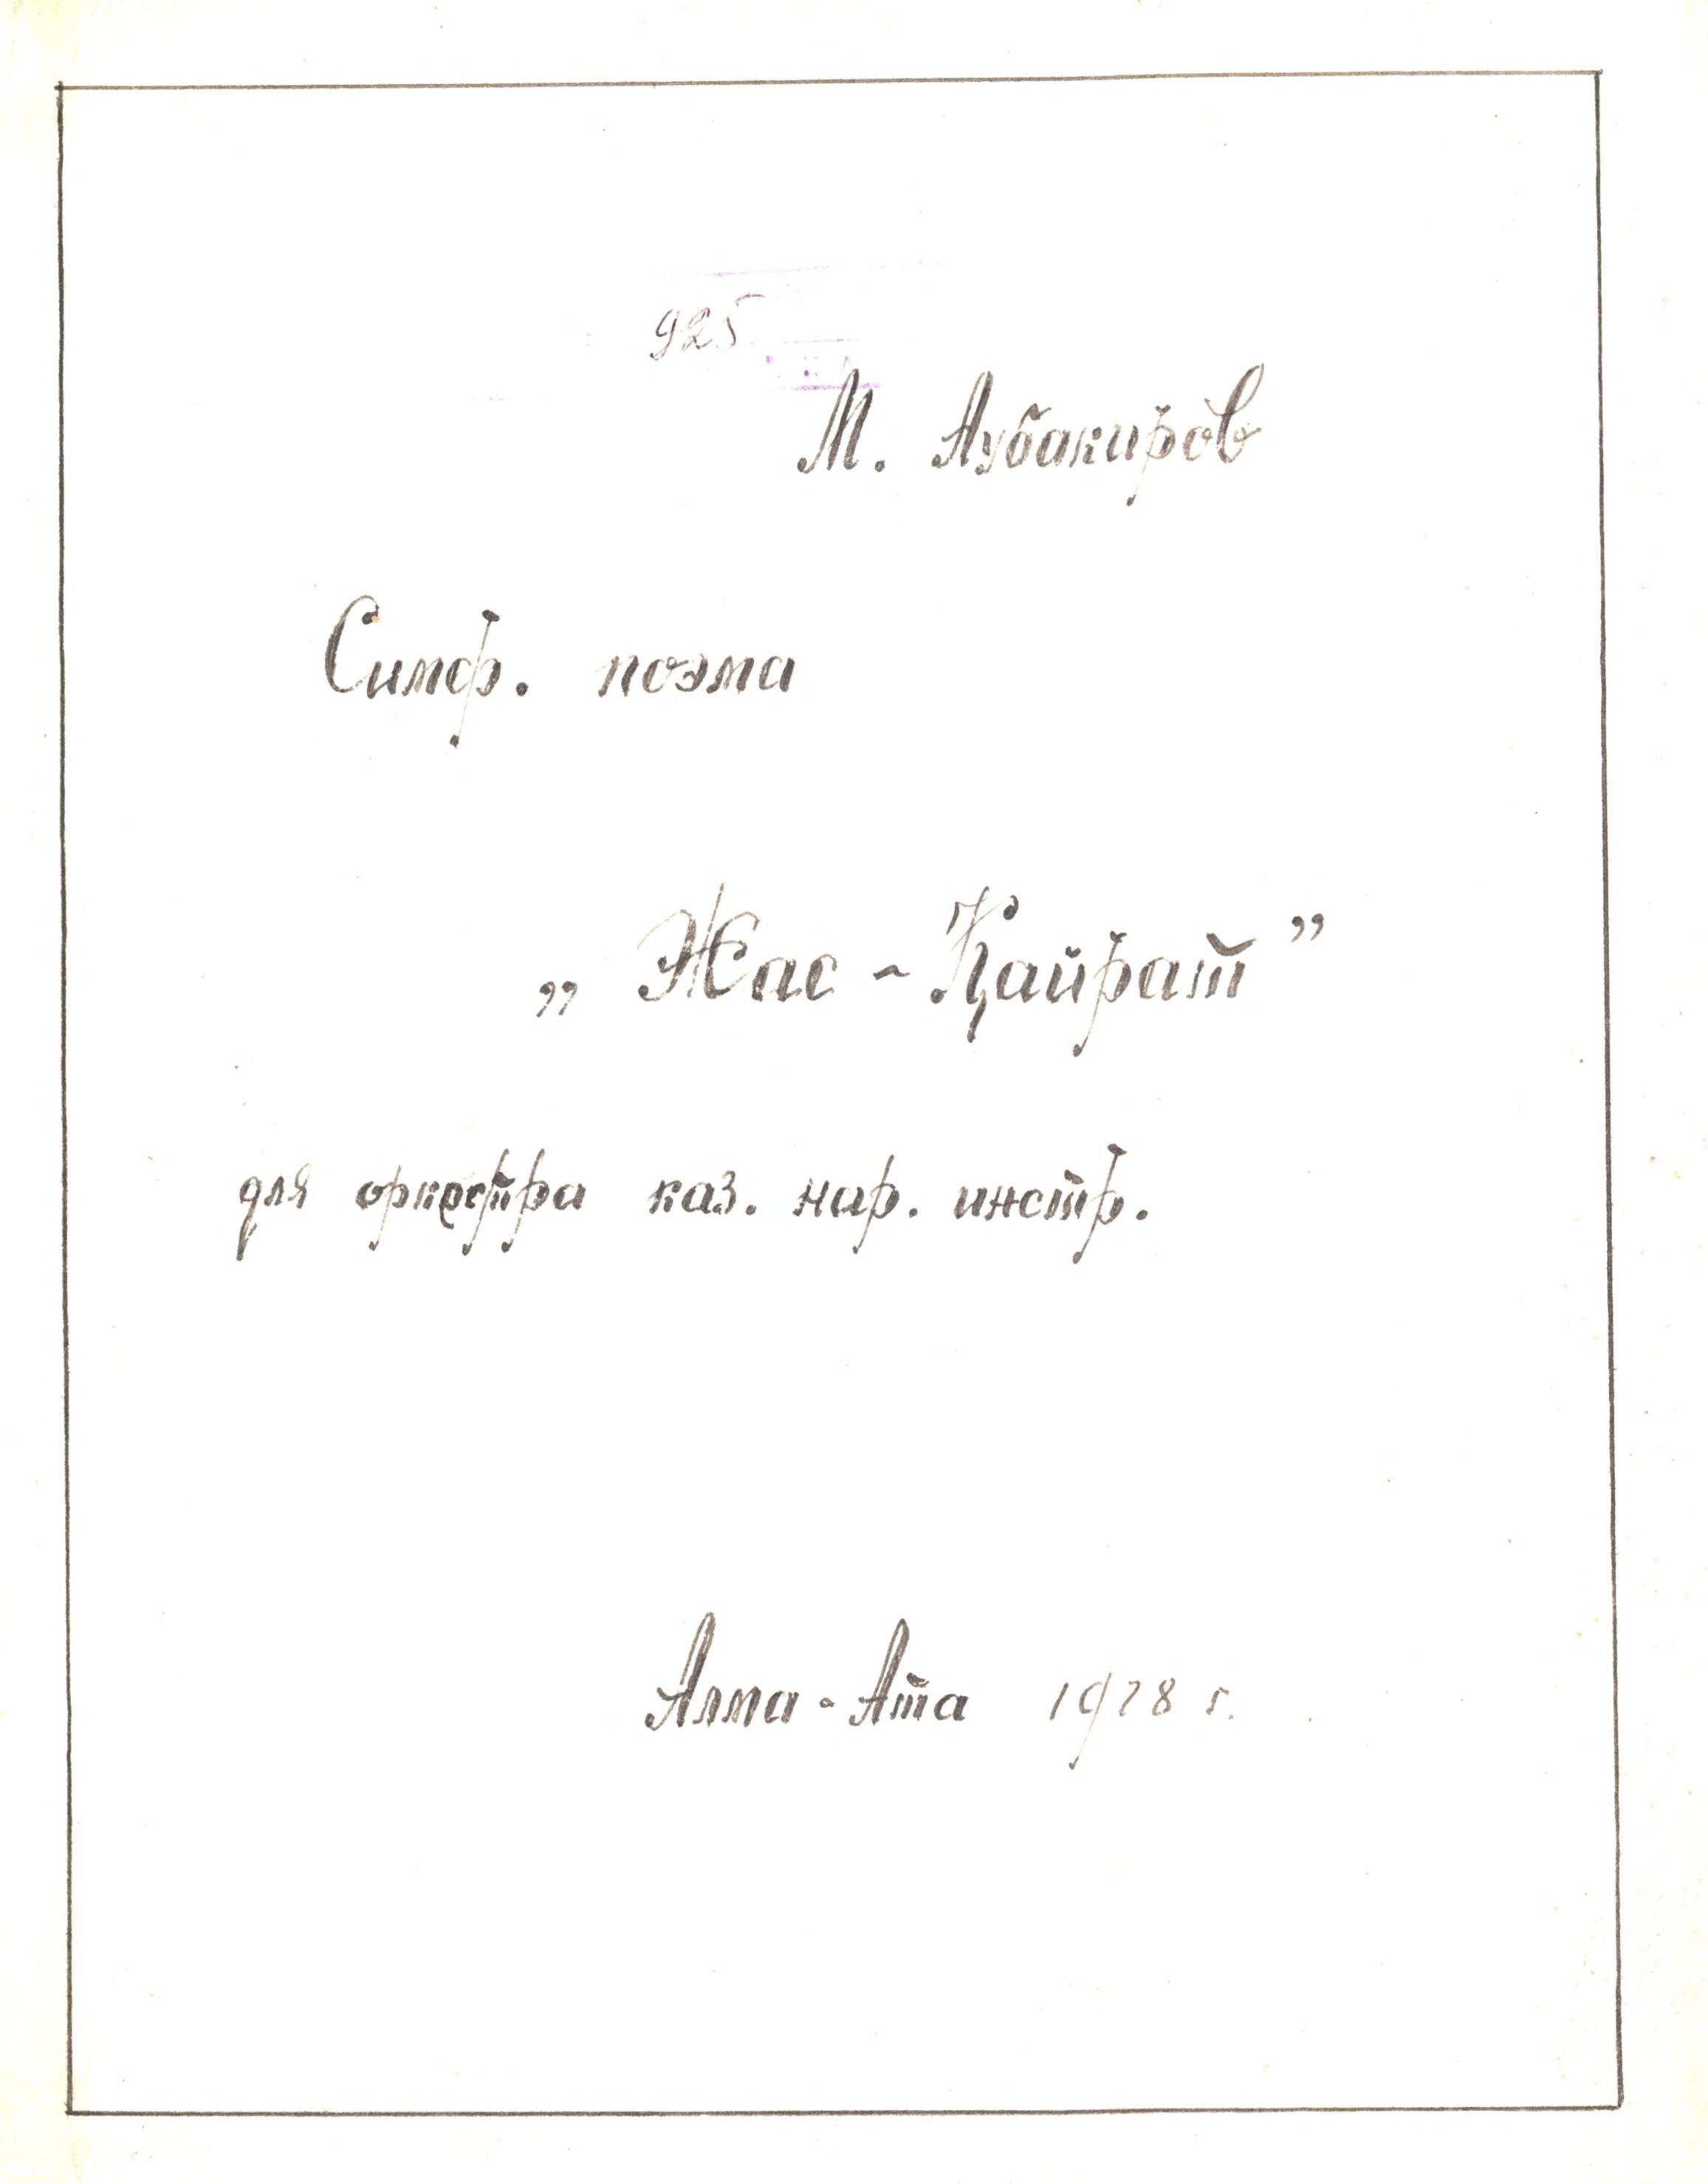 925
М. Аубакиров
Симф. поэма
„Жас - Қайрат”
для оркестра каз. нар. инстр.
Алма-Ата 1978 г.